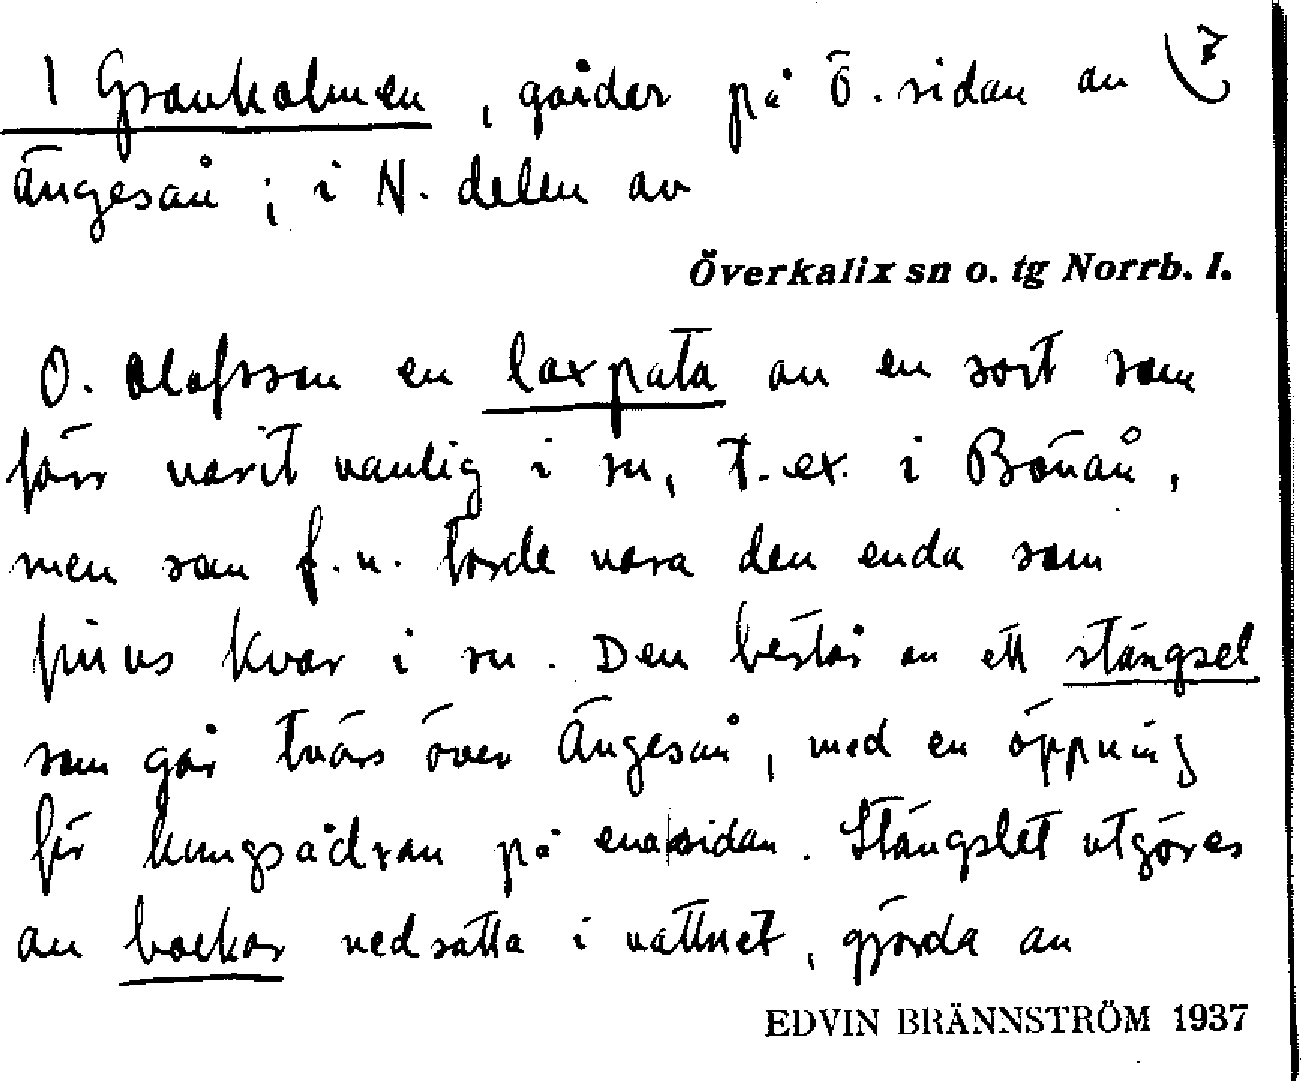 1 Granholmen, gårdar på Ö. sidan av 7
Ängesån; i N. delen av
Överkalix sn o. tg Norrb. l.
O. Olofsson en laxpata av en sort som
förr varit vanlig i sn, t.ex. i Bönån,
men som f.n. torde vara den enda som
finns kvar i sn. Den består av ett stängsel
som går tvärs över Ängesån, med en öppning
för kungsådran på ena sidan. Stängslet utgöres
av bockar nedsatta i vattnet, gjorda av
EDVIN BRÄNNSTRÖM 1937